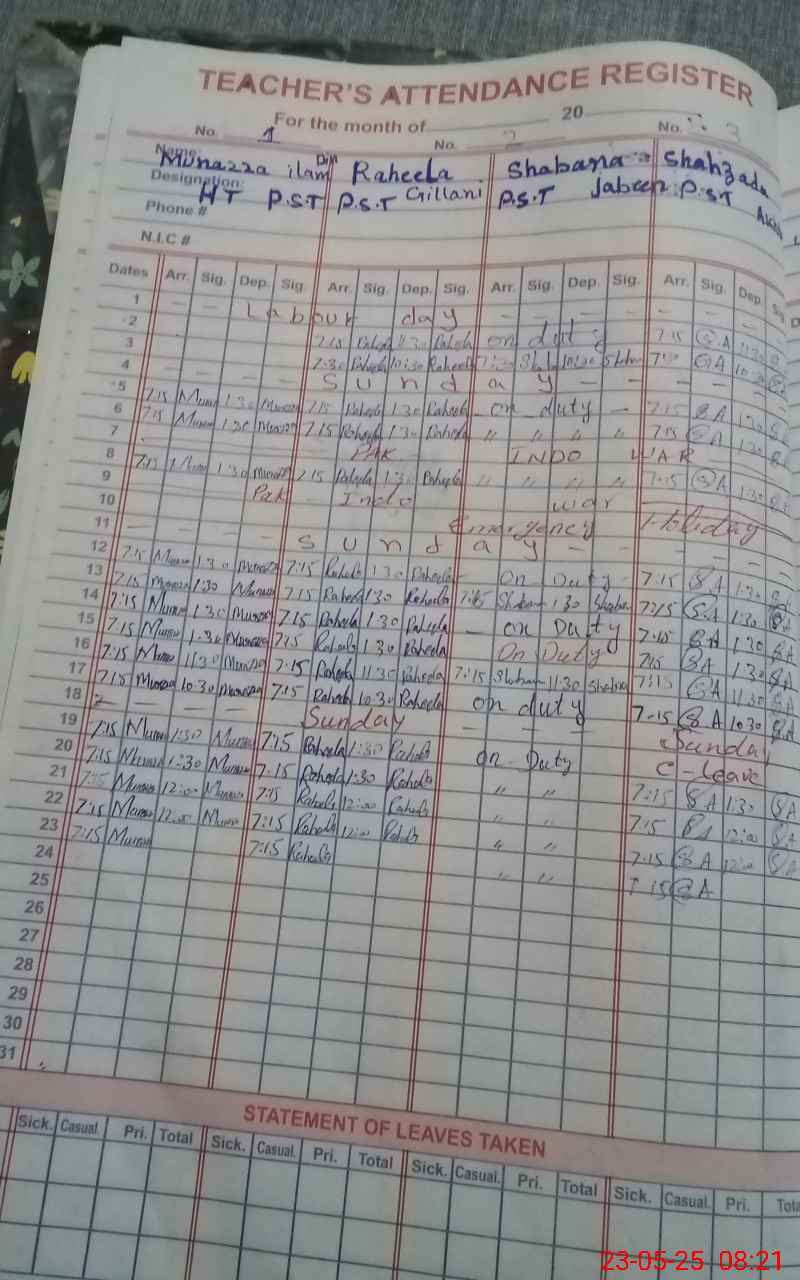 TEACHER'S ATTENDANCE REGISTER
For the month of 20
No. 1 No. 2 No. 3
Name: Munazza ilam Din Raheela Shabana Shahzada
Designation: HT P.S.T P.S.T Gillani P.S.T Jabeen P.S.T
Phone #
N.I.C #
Dates Arr. Sig. Dep. Sig. Arr. Sig. Dep. Sig. Arr. Sig. Dep. Sig. Arr. Sig. Dep. Sig
1 — — Labour day — — — —
2 7:15 Raheela 11:30 Raheela on duty 7:15 S.A 11:30
3 7:30 Raheela 10:30 Raheela 7:30 10:30 Shaban SA 10:30
4 — — — — Sunday — — — —
5 7:15 Munaz 1:30 Munazza 7:15 Raheela 1:30 Raheela — on duty — 7:15 SA 1:30
6 7:15 Munaz 1:30 Munazza 7:15 Raheela 1:30 Raheela " " " " 7:15 SA 1:30
7 PAK INDO WAR
8 7:15 1:30 Munazza 7:15 Raheela 1:30 Raheela " " " " 7:15 SA 1:30
9 Pak Indo war
10 Emergency Holiday
11 — — — — Sunday — — — —
12 7:15 Munaz 1:30 Munazza 7:15 Raheela 1:30 Raheela — On Duty 7:15 SA 1:30 SA
13 7:15 Munazza 1:30 Munazza 7:15 Raheela 1:30 Raheela 7:15 Shaban 1:30 Shaban 7:15 S.A 1:30 SA
14 7:15 Munaz 1:30 Munazza 7:15 Raheela 1:30 Raheela — on Duty 7:15 SA 1:30 SA
15 7:15 Munaz 1:30 Munazza 7:15 Raheela 1:30 Raheela On Duty 7:15 SA 1:30 SA
16 7:15 Munaz 11:30 Munazza 7:15 Raheela 11:30 Raheela 7:15 Shaban 11:30 Shabna 7:15 SA 11:30 SA
17 7:15 Munazza 10:30 Munazza 7:15 Raheela 10:30 Raheela on duty 7:15 SA 10:30 SA
18 — — — — Sunday — — — Sunday
19 7:15 Munaz 1:30 Munaz 7:15 Raheela 1:30 Raheela on Duty C-leave
20 7:15 Munaz 1:30 Munaz 7:15 Raheela 1:30 Raheela " " 7:15 SA 1:30 SA
21 7:15 Munaz 12:00 Munazz 7:15 Raheela 12:00 Raheela " " 7:15 SA 12:00 SA
22 7:15 Munaz 12:00 Munaz 7:15 Raheela 12:00 Raheela " " 7:15 SA 12:00 SA
23 7:15 Munaz 7:15 Raheela " " 7:15 SA
24
25
26
27
28
29
30
31
STATEMENT OF LEAVES TAKEN
Sick. Casual. Pri. Total Sick. Casual. Pri. Total Sick. Casual. Pri. Total Sick. Casual. Pri. Tota
23-05-25 08:21